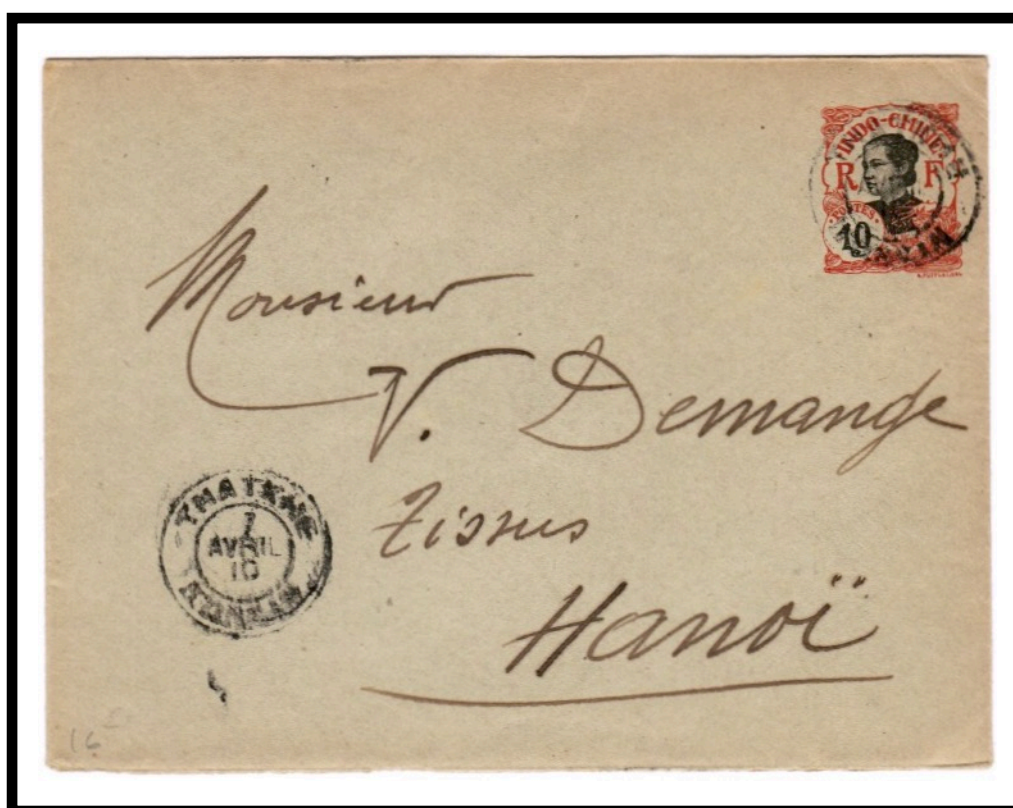 INDO-CHINE
R F
POSTES
10
Monsieur
V. Demange
Tissus
Hanoï
THATKHE
7
AVRIL
10
TONKIN
16